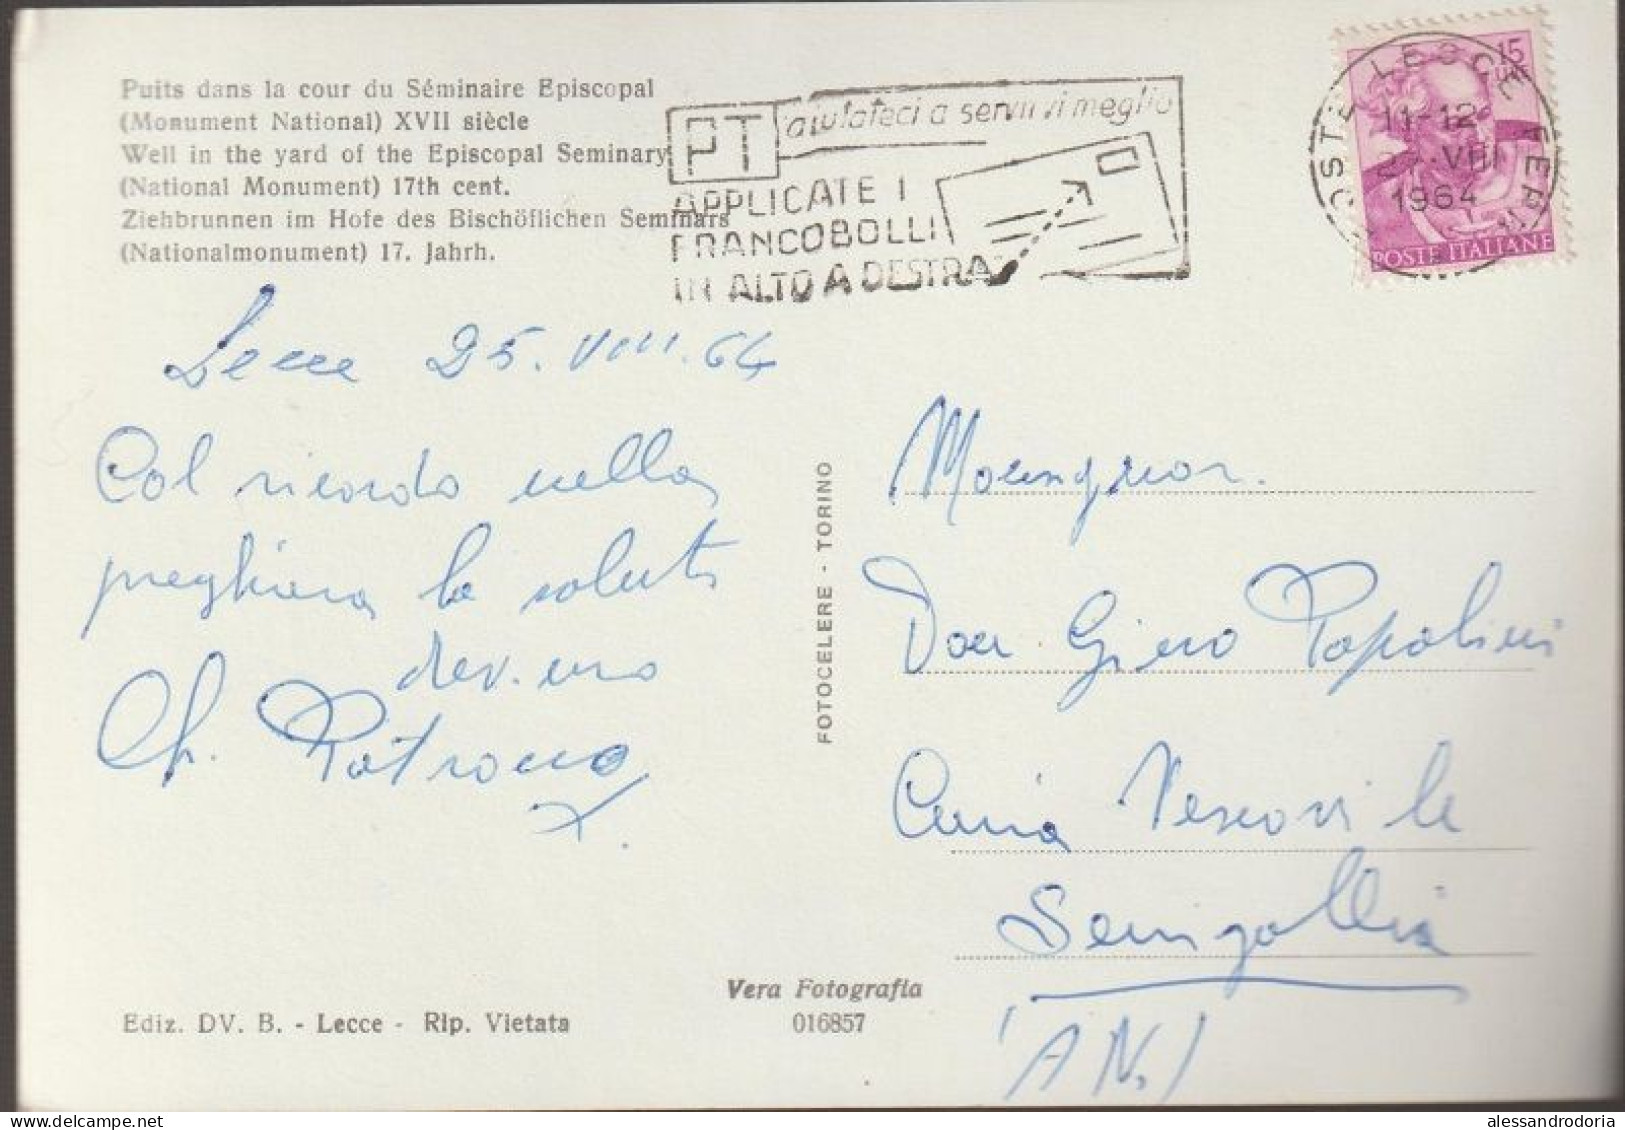 Puits dans la cour du Séminaire Episcopal
(Monument National) XVII siècle
Well in the yard of the Episcopal Seminary
(National Monument) 17th cent.
Ziehbrunnen im Hofe des Bischöflichen Seminars
(Nationalmonument) 17. Jahrh.
PT aiutateci a servirvi meglio
APPLICATE I
FRANCOBOLLI
IN ALTO A DESTRA
POSTE LECCE FERR
11-12
VIII
1964
15
POSTE ITALIANE
Lecce 25.VIII.64
Col ricordo nella
preghiera la saluta
dev.mo
Ch.
FOTOCELERE - TORINO
Monsignor.
Don Gino Papolini
Curia Vescovile
Senigallia
(AN.)
Vera Fotografia
016857
Ediz. DV. B. - Lecce - Rip. Vietata
alessandrodoria